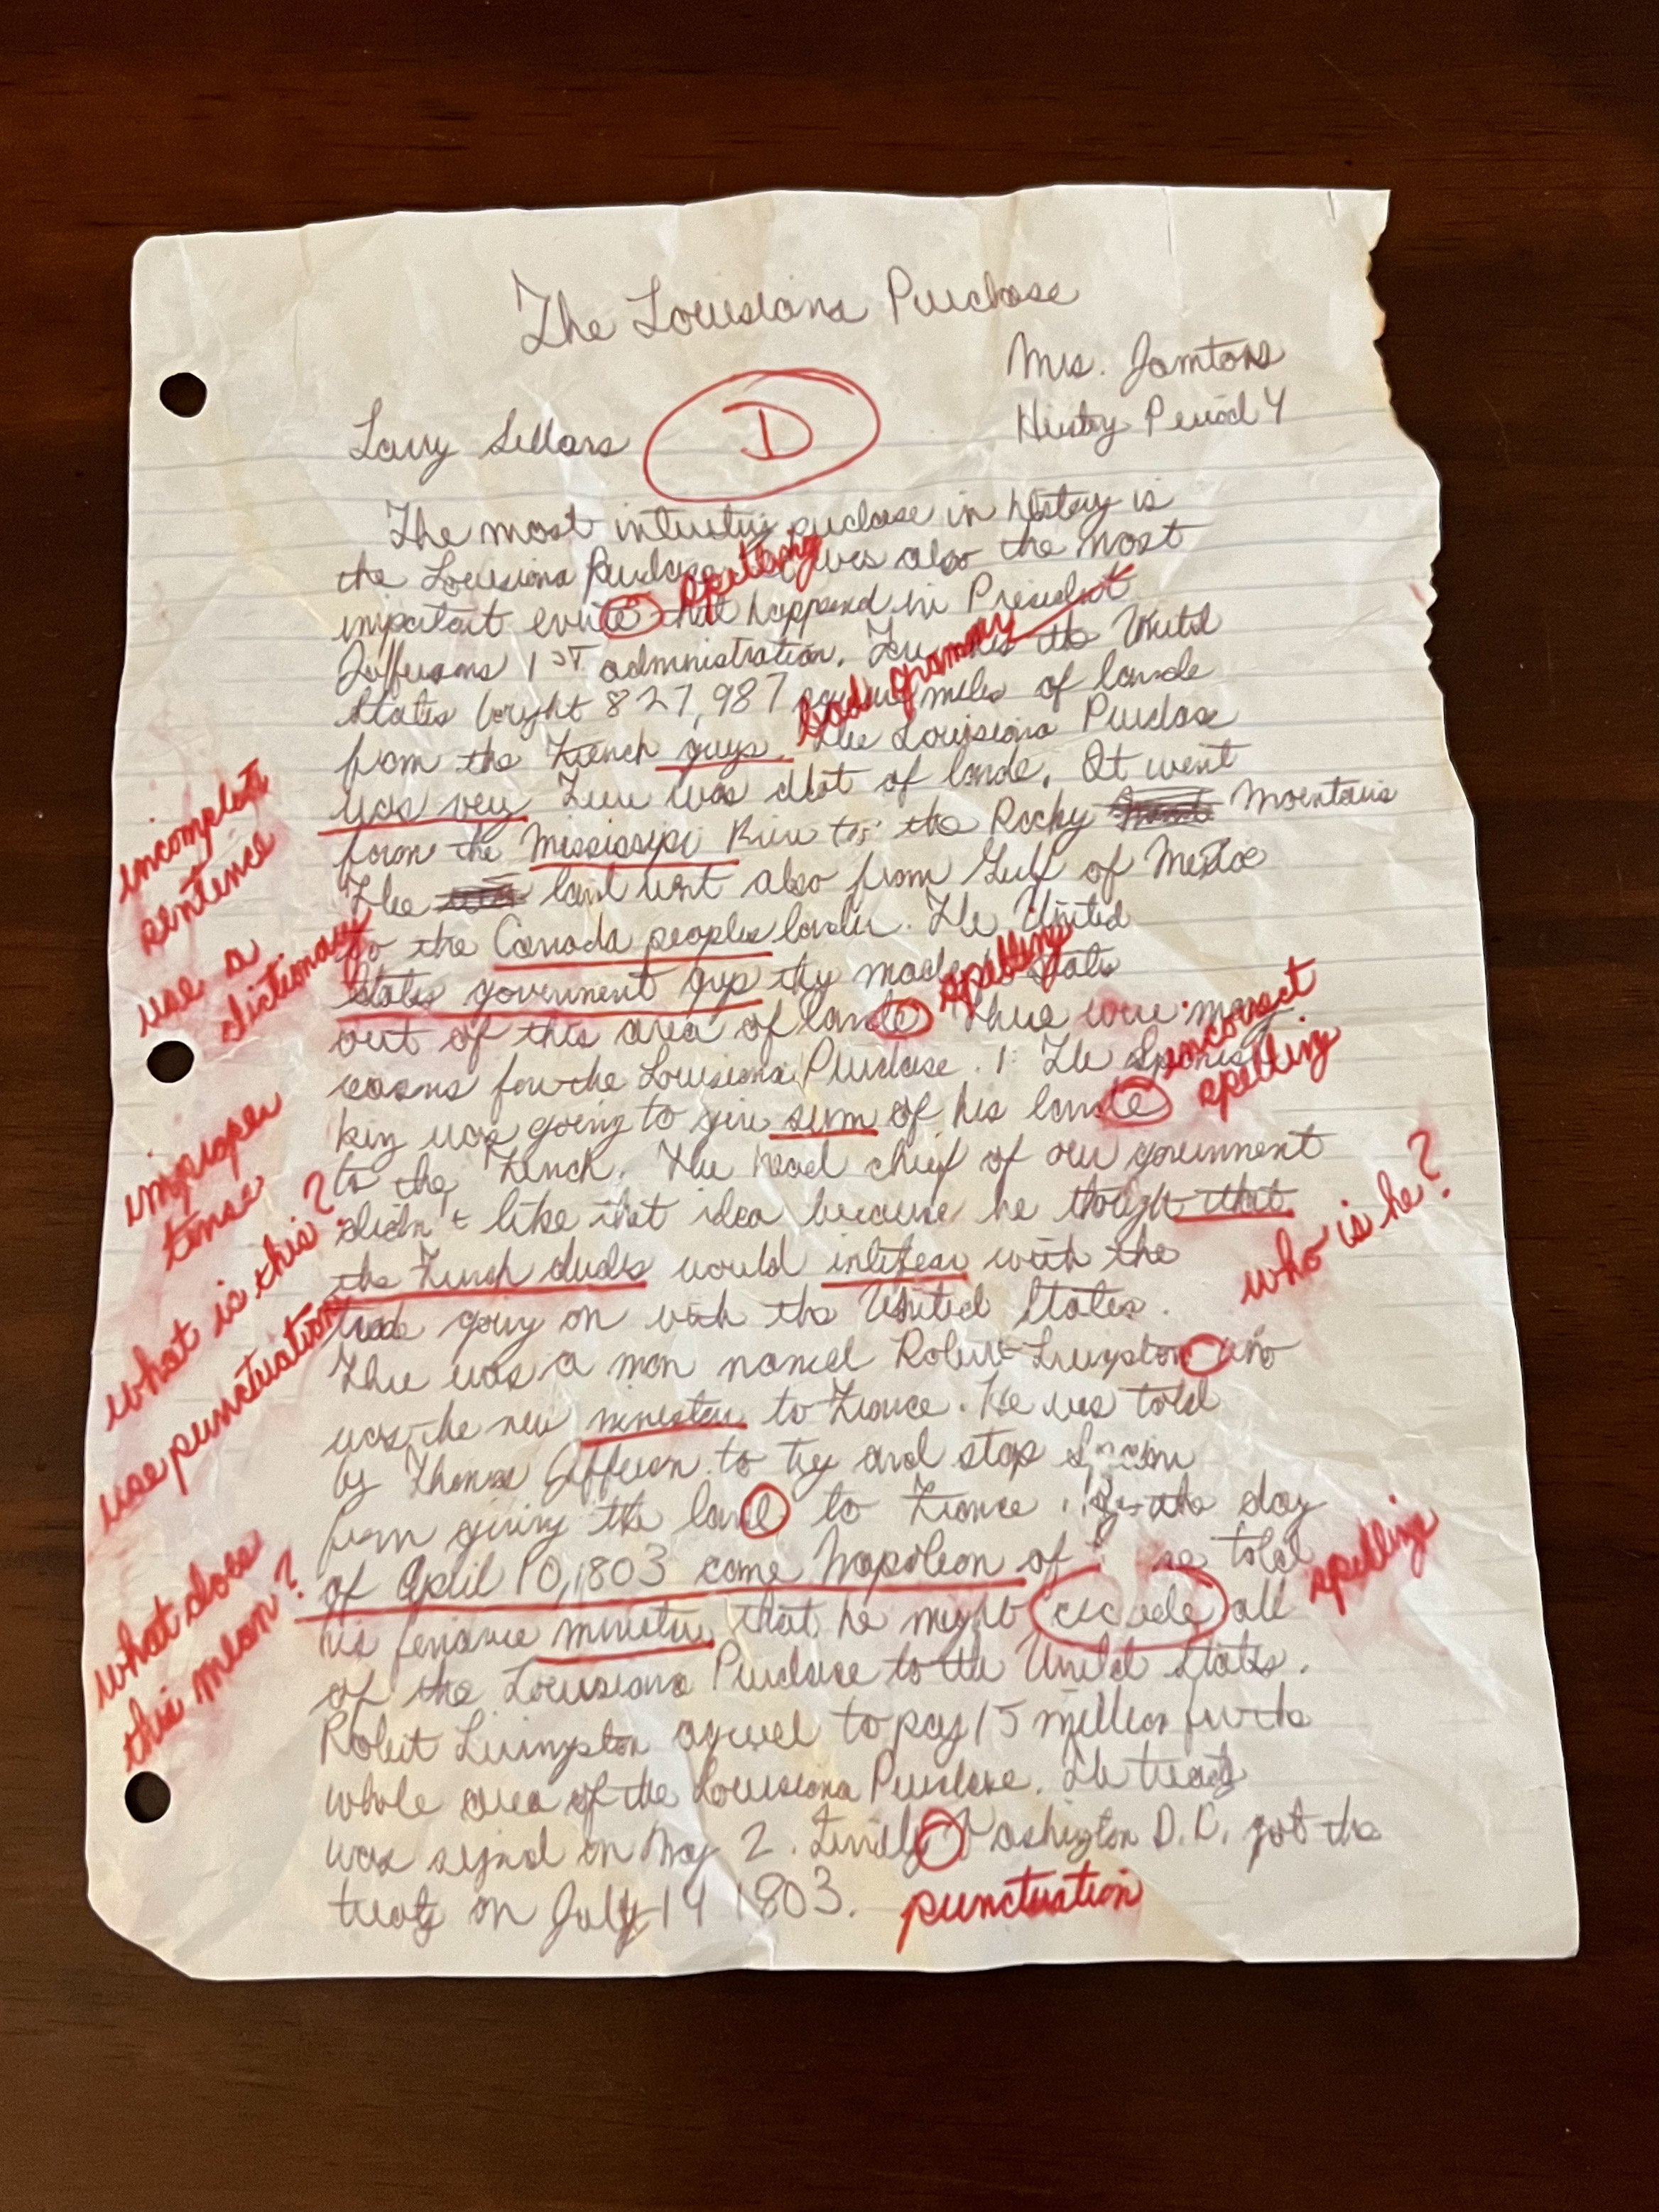 The Louisiana Purchase
Mrs. Jamtoss
History Period 4
Larry Sellars
D
The most intrustin purchase in history is
the Louisiana Purchase. It was also the most
spelling
important evnte that happend in President
Jeffersons 1ST administration. the United
bad grammar
States bought 827,987 square miles of lande
from the French guys. The Louisiana Purchase
was very There was alot of lande. It went
incomplete
sentence
form the Mississipi River to the Rocky Mountains
The land went also from Gulf of Mexico
to the Canada peoples lander. The United
use a
dictionary
States government guys they made states
spelling
out of this area of lande There were many
reasns for the Louisiana Purchase. 1: The Spanish
incorrect
spelling
king was going to give sum of his lande
to the French. The head chief of our government
improper
tense
didn't like that idea because he though that
the French dudes would intifear with the
what is this?
who is he?
trade going on with the United States.
use punctuation
There was a man named Robert Livingston who
was the new minister to France. He was told
by Thomas Jefferson to try and stop
from giving the lande to France. the day
of April 10, 1803 come Napoleon of he told
what does
this mean?
spelling
his finance minister that he might all
of the Louisiana Purchase to the United States.
Robert Livingston agreed to pay 15 million for the
whole area of the Louisiana Purchase. The treaty
was signd on May 2. Finally Washington D.C. got the
treaty on July 14 1803.
punctuation